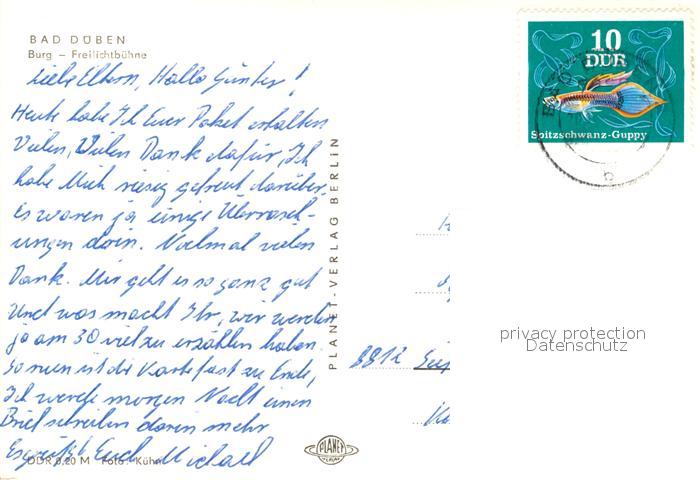 BAD DÜBEN
Burg – Freilichtbühne
Liebe Eltern, Hallo Günter!
Heute habe Ich Euer Paket erhalten
Vielen, Vielen Dank dafür, Ich
habe Mich riesig gefreut darüber,
es waren ja einige Überrasch-
ungen darin. Nochmal vielen
Dank. Mir geht es so ganz gut
Und was macht Ihr, wir werden
ja am 30 viel zu erzählen haben.
So nun ist die Karte fast zu Ende,
Ich werde morgen Nacht einen
Brief schreiben darin mehr
Es grüßt Euch Michael
DDR 0,20 M Foto: Kühn
PLANET-VERLAG BERLIN
PLANET
VERLAG
10
DDR
Spitzschwanz-Guppy
b
8812
privacy protection
Datenschutz